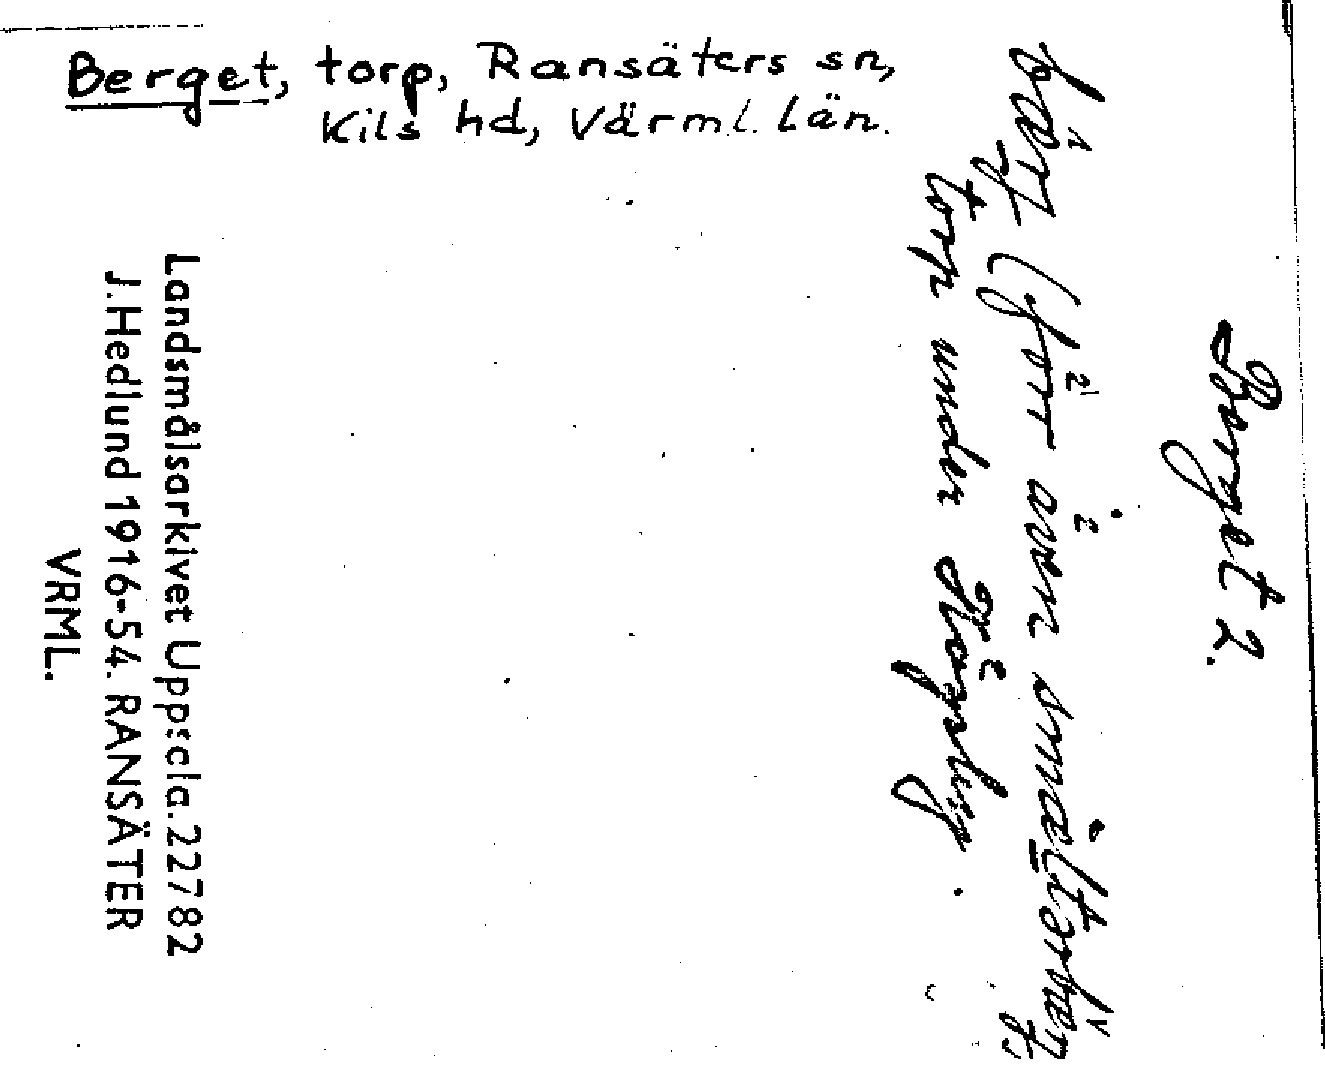 Berget, torp, Ransäters sn,
Kils hd, Värml. Län.
Berget 2.
(förr även
torp under
Landsmålsarkivet Uppsala. 22782
J. Hedlund 1916-54. RANSÄTER
VRML.